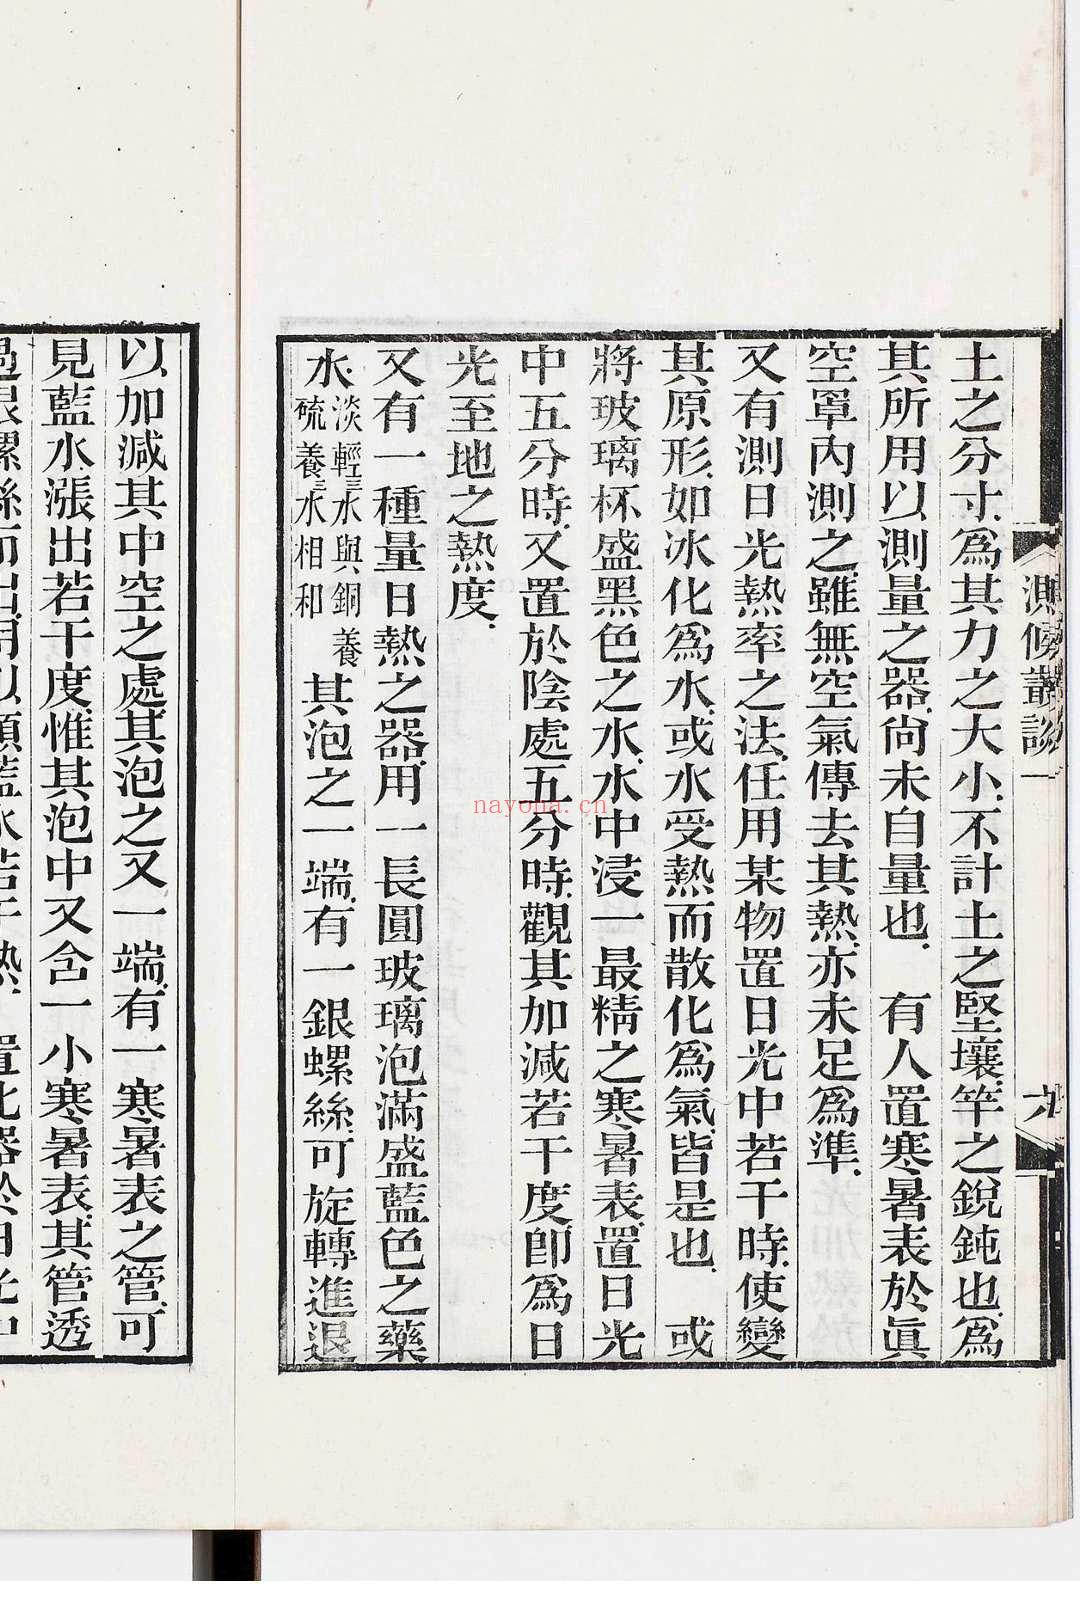 測候叢談一
六
土之分寸爲其力之大小不計土之堅壤竿之銳鈍也爲
其所用以測量之器尚未自量也　有人置寒暑表於眞
空罩內測之雖無空氣傳去其熱亦未足爲準
又有測日光熱率之法任用某物置日光中若干時使變
其原形如冰化爲水或水受熱而散化爲氣皆是也　或
將玻璃杯盛黑色之水水中浸一最精之寒暑表置日光
中五分時又置於陰處五分時觀其加減若干度卽爲日
光至地之熱度
又有一種量日熱之器用一長圓玻璃泡滿盛藍色之藥
水淡輕三水與銅養硫養三水相和其泡之一端有一銀螺絲可旋轉進退
以加減其中空之處其泡之又一端有一寒暑表之管可
見藍水漲出若干度惟其泡中又含一小寒暑表其管透
nayona.cn